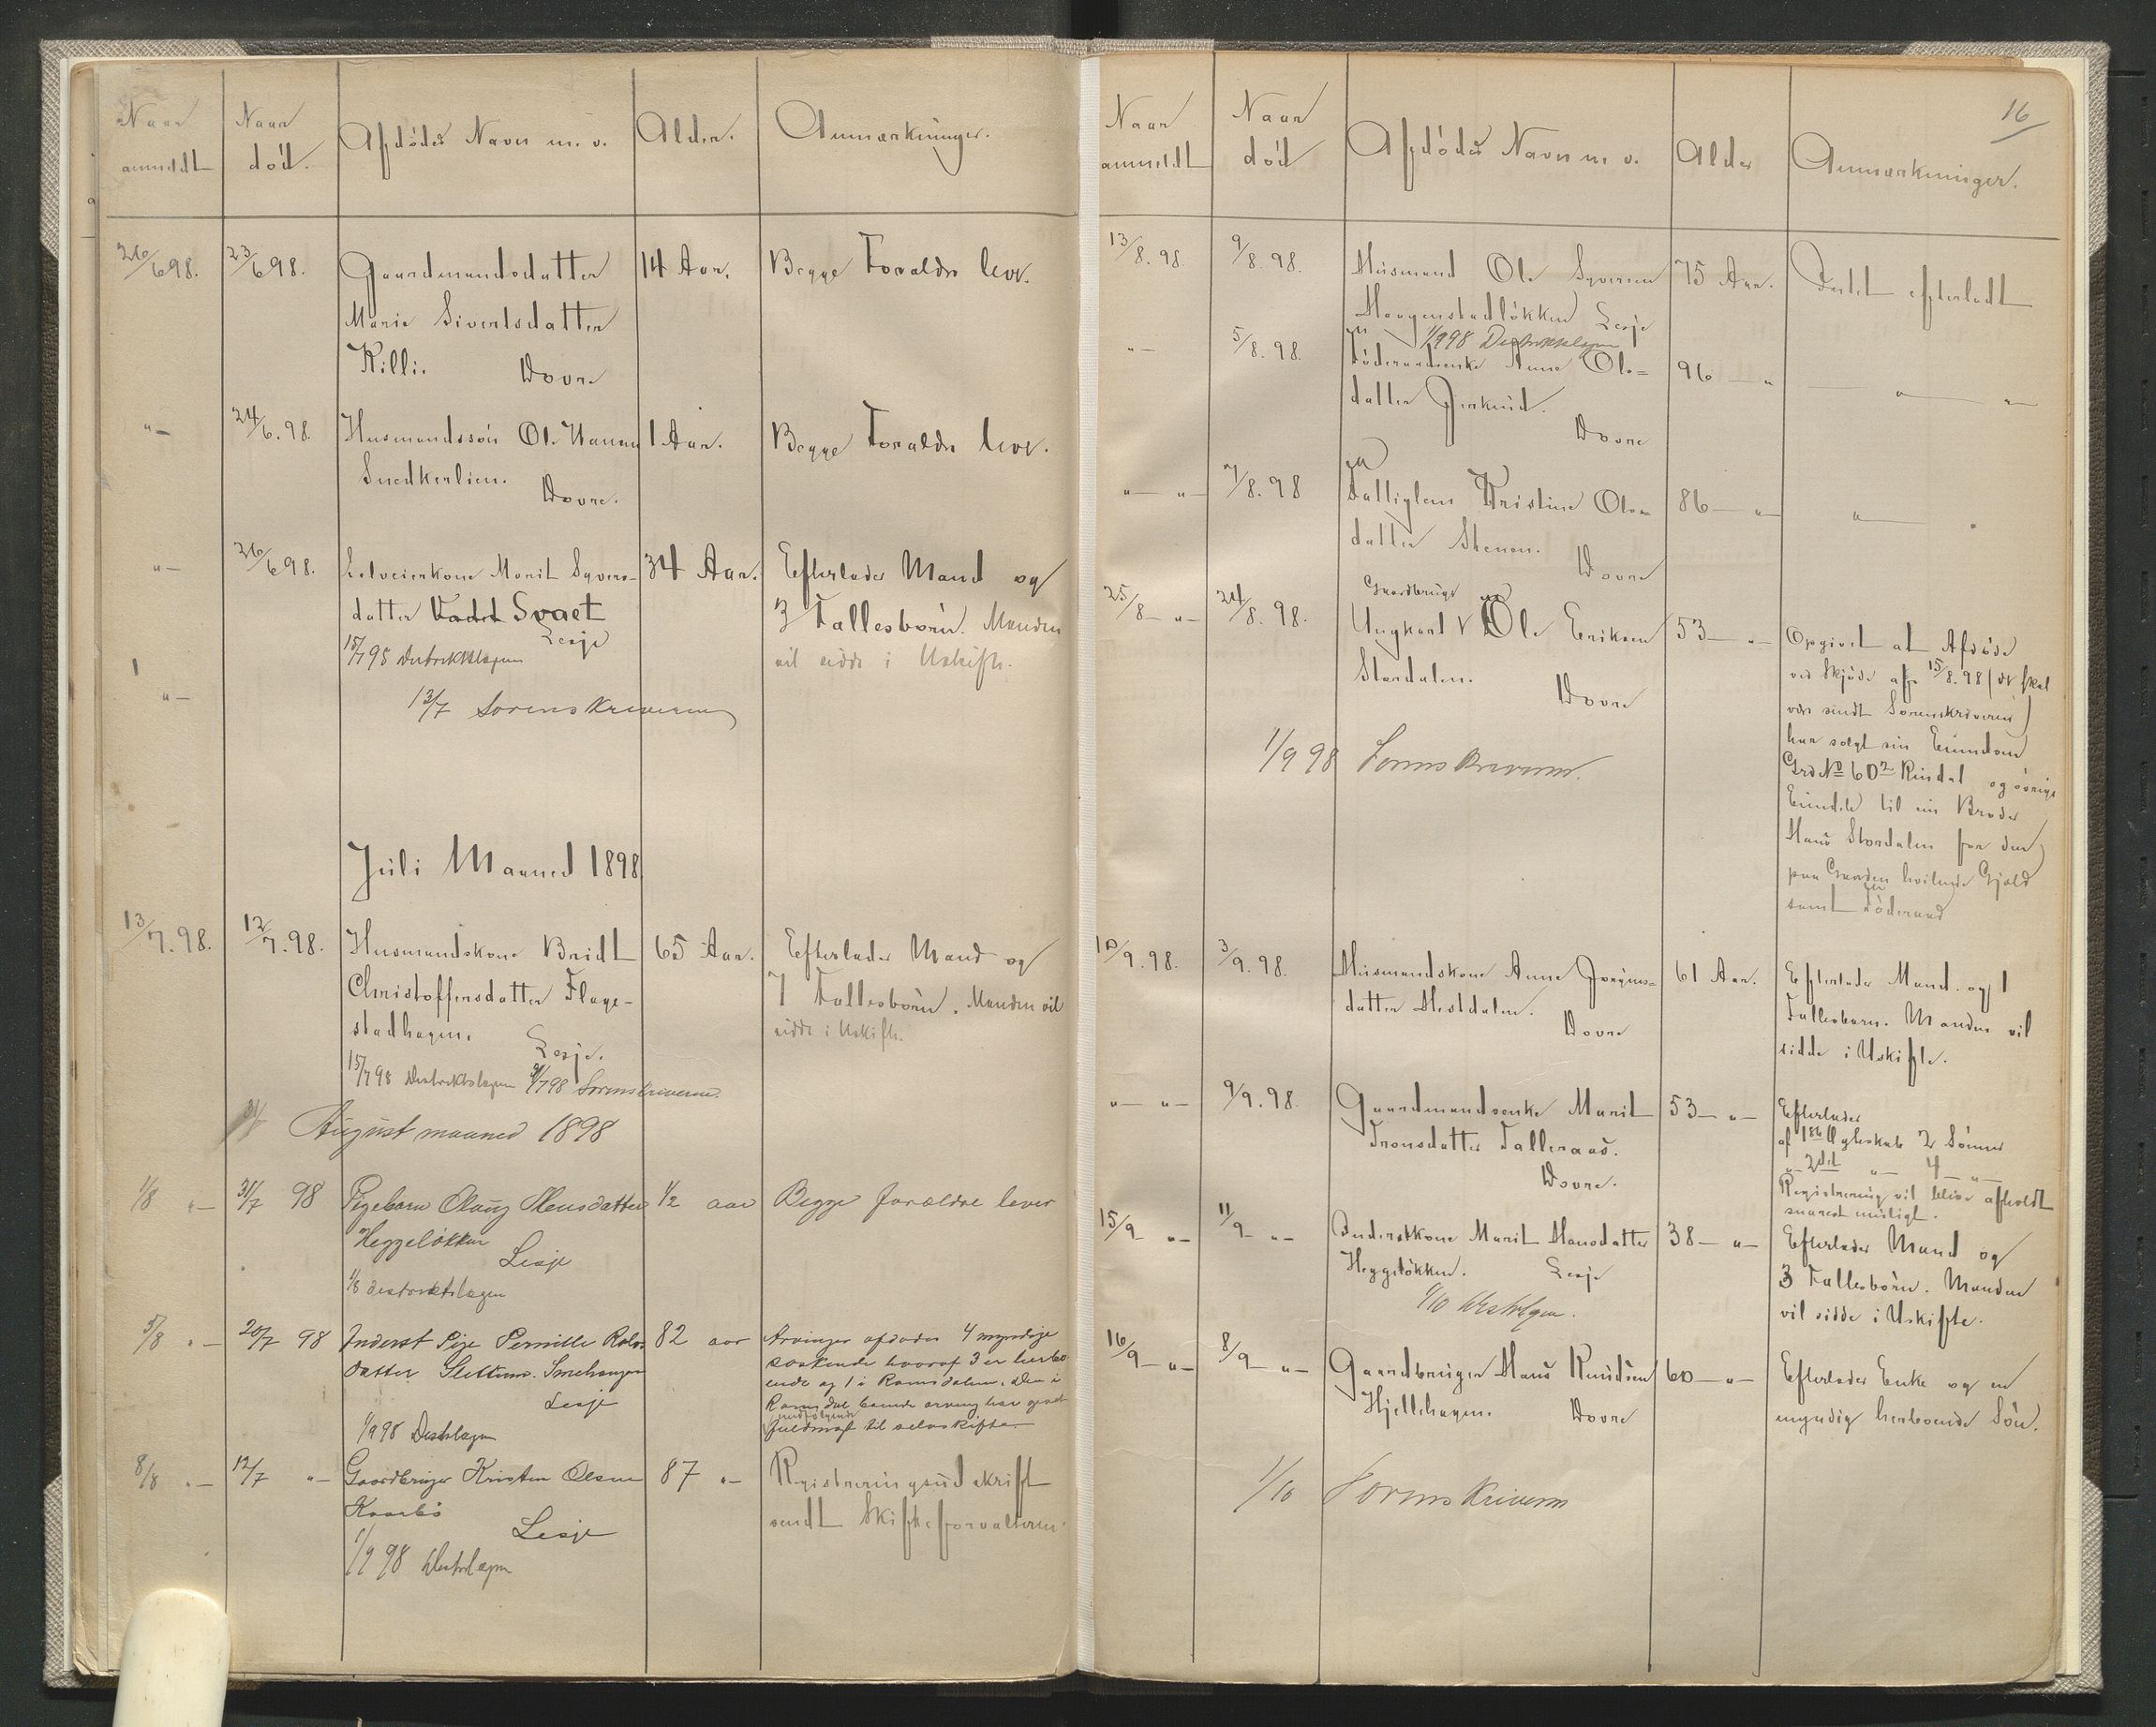 Naar anmeldt
Naar död.
Afdödes Navn m. v.
Alder.
Anmærkninger.
26/6 98. 23/6 98. Gaardmandsdatter 14 Aar. Begge Forældre lever.
Marie Sivertsdatter
Killi. Dovre
"— 24/6. 98. Husmandssön Ole Hansen 1 Aar. Begge Forældre lever.
Snedkerlien.
Dovre.
"— 26/6 98. Selveierkone Marit Syvers- 34 Aar. Efterlader Mand og
datter Svaet 3 Fællesbörn. Manden
Lesje vil sidde i Uskifte.
15/7 98 Distriktslægen
"—
13/7 Sorenskriveren
Juli Maaned 1898.
13/7. 98. 12/7. 98. Husmandskone Bridt 65 Aar. Efterlader Mand og
Christoffersdatter Flage- 7 Fællesbörn. Manden vil
stadhagen. sidde i Uskifte.
Lesje.
15/7 98 Distriktslægen 9/7 98 Sorenskriveren
August maaned 1898
1/8 "— 31/7 98 Pigebarn Olaug Hansdatter 1/2 aar Begge forældre lever
Heggelökken
Lesje
1/8 distriktslægen
5/8 "— 20/7 98 Inderst Pige Pernille Rolvs- 82 aar Arvinger afdödes 4 myndige
datter Slettum. Smehaugen söskende hvoraf 3 er herbo
Lesje ende og 1 i Romsdalen. Den i
Romsdal boende arving har givet
medfölgende
1/9 98 Distrlægen fuldmagt til selvskifte.
8/8 "— 12/7 "— Gaardbruger Kristen Olsen 87 "— Registreringsudskrift
Kaarbö sendt Skifteforvalteren.
Lesje
1/9 98 Distrlægen
16
Naar anmeldt
Naar död
Afdödes Navn m. v.
Alder
Anmærkninger.
13/8. 98. 9/8. 98. Husmand Ole Syversen 75 Aar. Intet efterladt
Haugenstadlökken Lesje
1/9 98 Distriktslægen
"— 5/8. 98. Föderaadsenke Anne Ols- 96 —" — " — "—
datter Jerkind.
Dovre
"— "— 7/8. 98 Fattiglem Kristine Ols- 86 — "— " —
datter Stenen.
Dovre
Gaardbruger og
25/8— "— 24/8. 98. Ungkarl Ole Eriksen 53— "— Opgivet at Afdöde
Stordalen. ved Skjöde af 15/8. 98 (der skal
Dovre være sendt Sorenskriveren)
har solgt sin Eiendom
1/9 98 Sorenskriveren. Grd No 60 2 Rindal og övrige
Eiendele til sin Broder
Hans Stordalen for den
paa Gaarden hvilende Gjæld
samt Föderaad
10/9. 98. 3/9. 98. Husmandskone Anne Jörgens- 61 Aar. Efterlader Mand og 1
datter Hestdalen. Fællesbarn. Manden vil
Dovre sidde i Uskifte.
"— "— 9/9. 98. Gaardmandsenke Marit 53— "— Efterlader
Tronsdatter Talleraas. af 1ste Ægteskab 2 Sönner
Dovre. "— 2det "— 4— "—
Registrering vil blive afholdt
snarest muligt.
15/9 "— 11/9 "— Inderstkone Marit Hansdatter 38— "— Efterlader Mand og
Heggelökken. Lesje 3 Fællesbörn. Manden
1/10 Distrlægen. vil sidde i Uskifte.
16/9— "— 8/9— "— Gaardbruger Hans Knudsen 60— "— Efterlader Enke og en
Hjellehagen. Dovre myndig herboende Sön.
1/10 Sorenskriveren